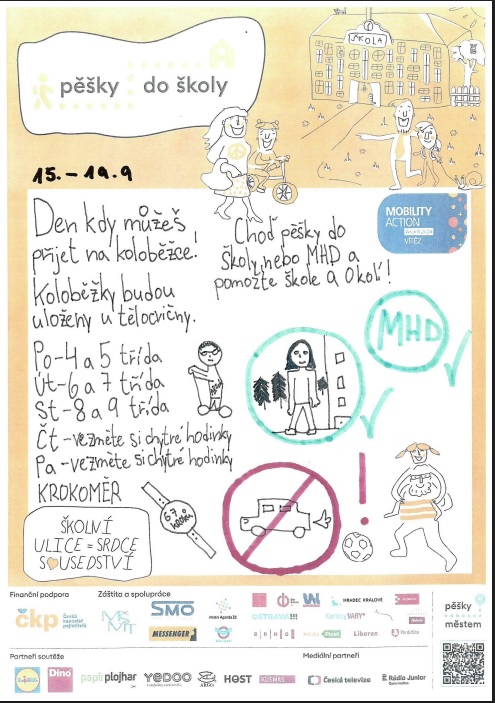 ŠKOLA
pěšky do školy
15.-19.9
MOBILITY
ACTION
VÍTĚZ
Den kdy můžeš
přijet na koloběžce!
Koloběžky budou
uloženy u tělocvičny.
Choď pěšky do
školy, nebo MHD a
pomožte škole a Okolí!
MHD
Po-4 a 5 třída
Út-6 a 7 třída
St-8 a 9 třída
Čt-vezměte si chytré hodinky
Pa-vezměte si chytré hodinky
KROKOMĚR
67
kroků
!
ŠKOLNÍ
ULICE = SRDCE
SOUSEDSTVÍ
Finanční podpora
Záštita a spolupráce
čkp
Česká
kancelář
pojistitelů
SMO
MESSENGER
OSTRAVA!!!
HRADEC KRÁLOVÉ
Karlovy VARY
BRNO
Plzeň
Liberec
pěšky
městem
Partneři soutěže
Mediální partneři
Lidl
Dino
papírplojhar
YEDOO
ARGO
HOST
KOSMAS
Česká televize
Rádio Junior